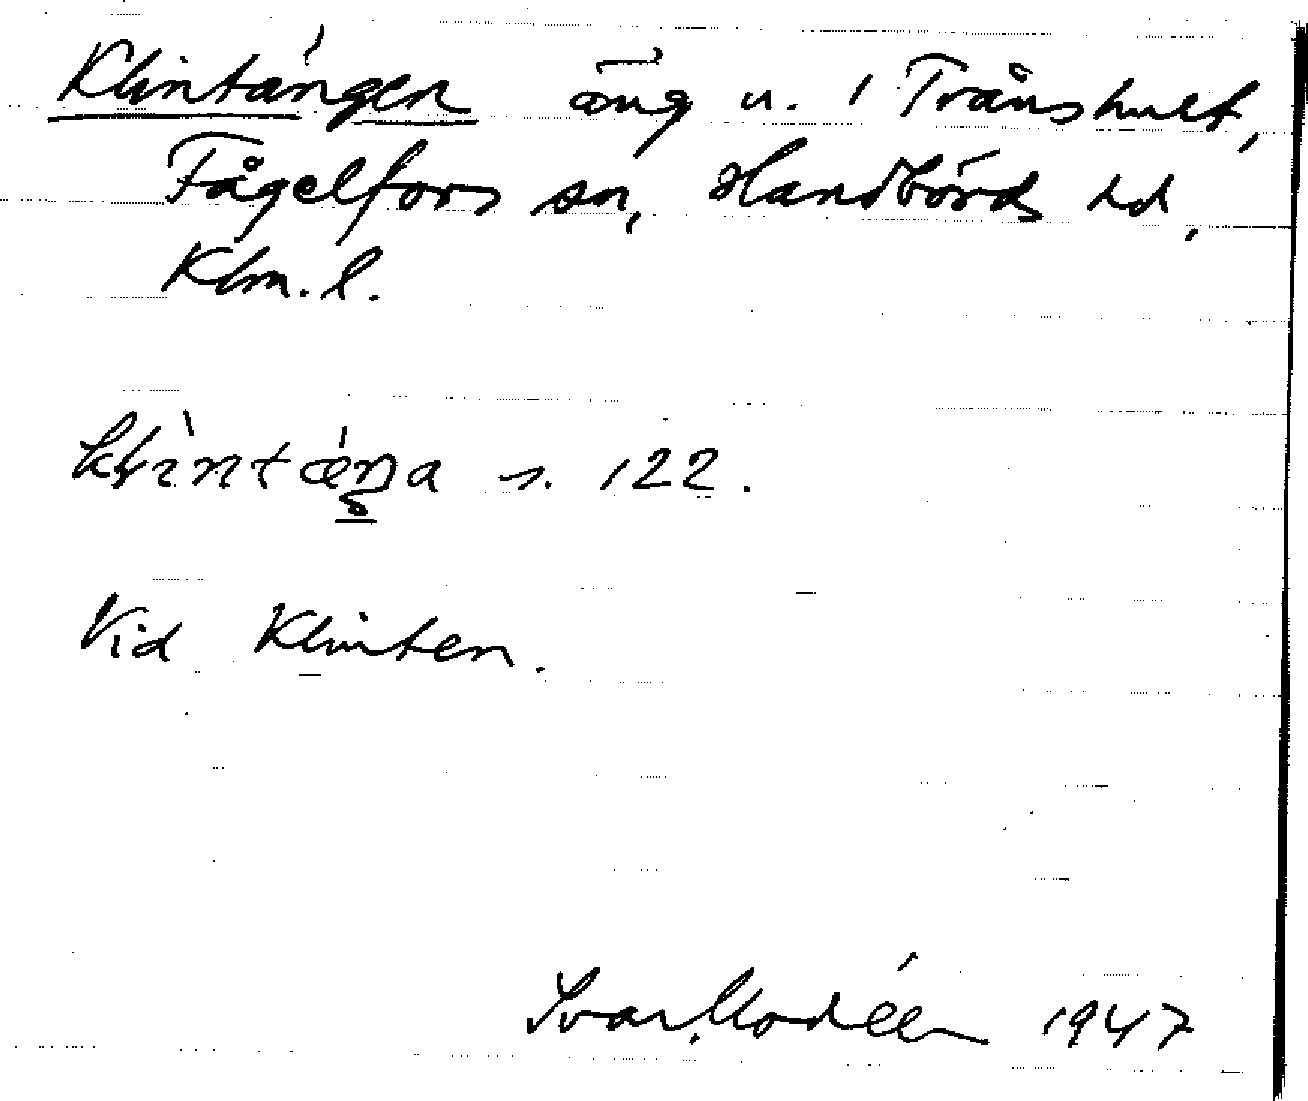 Klintängen äng u. i Trånshult,
Fågelfors sn, Handbörds hd,
Klm. l.
s. 122.
Vid Klinten.
Ivar Modéer 1947